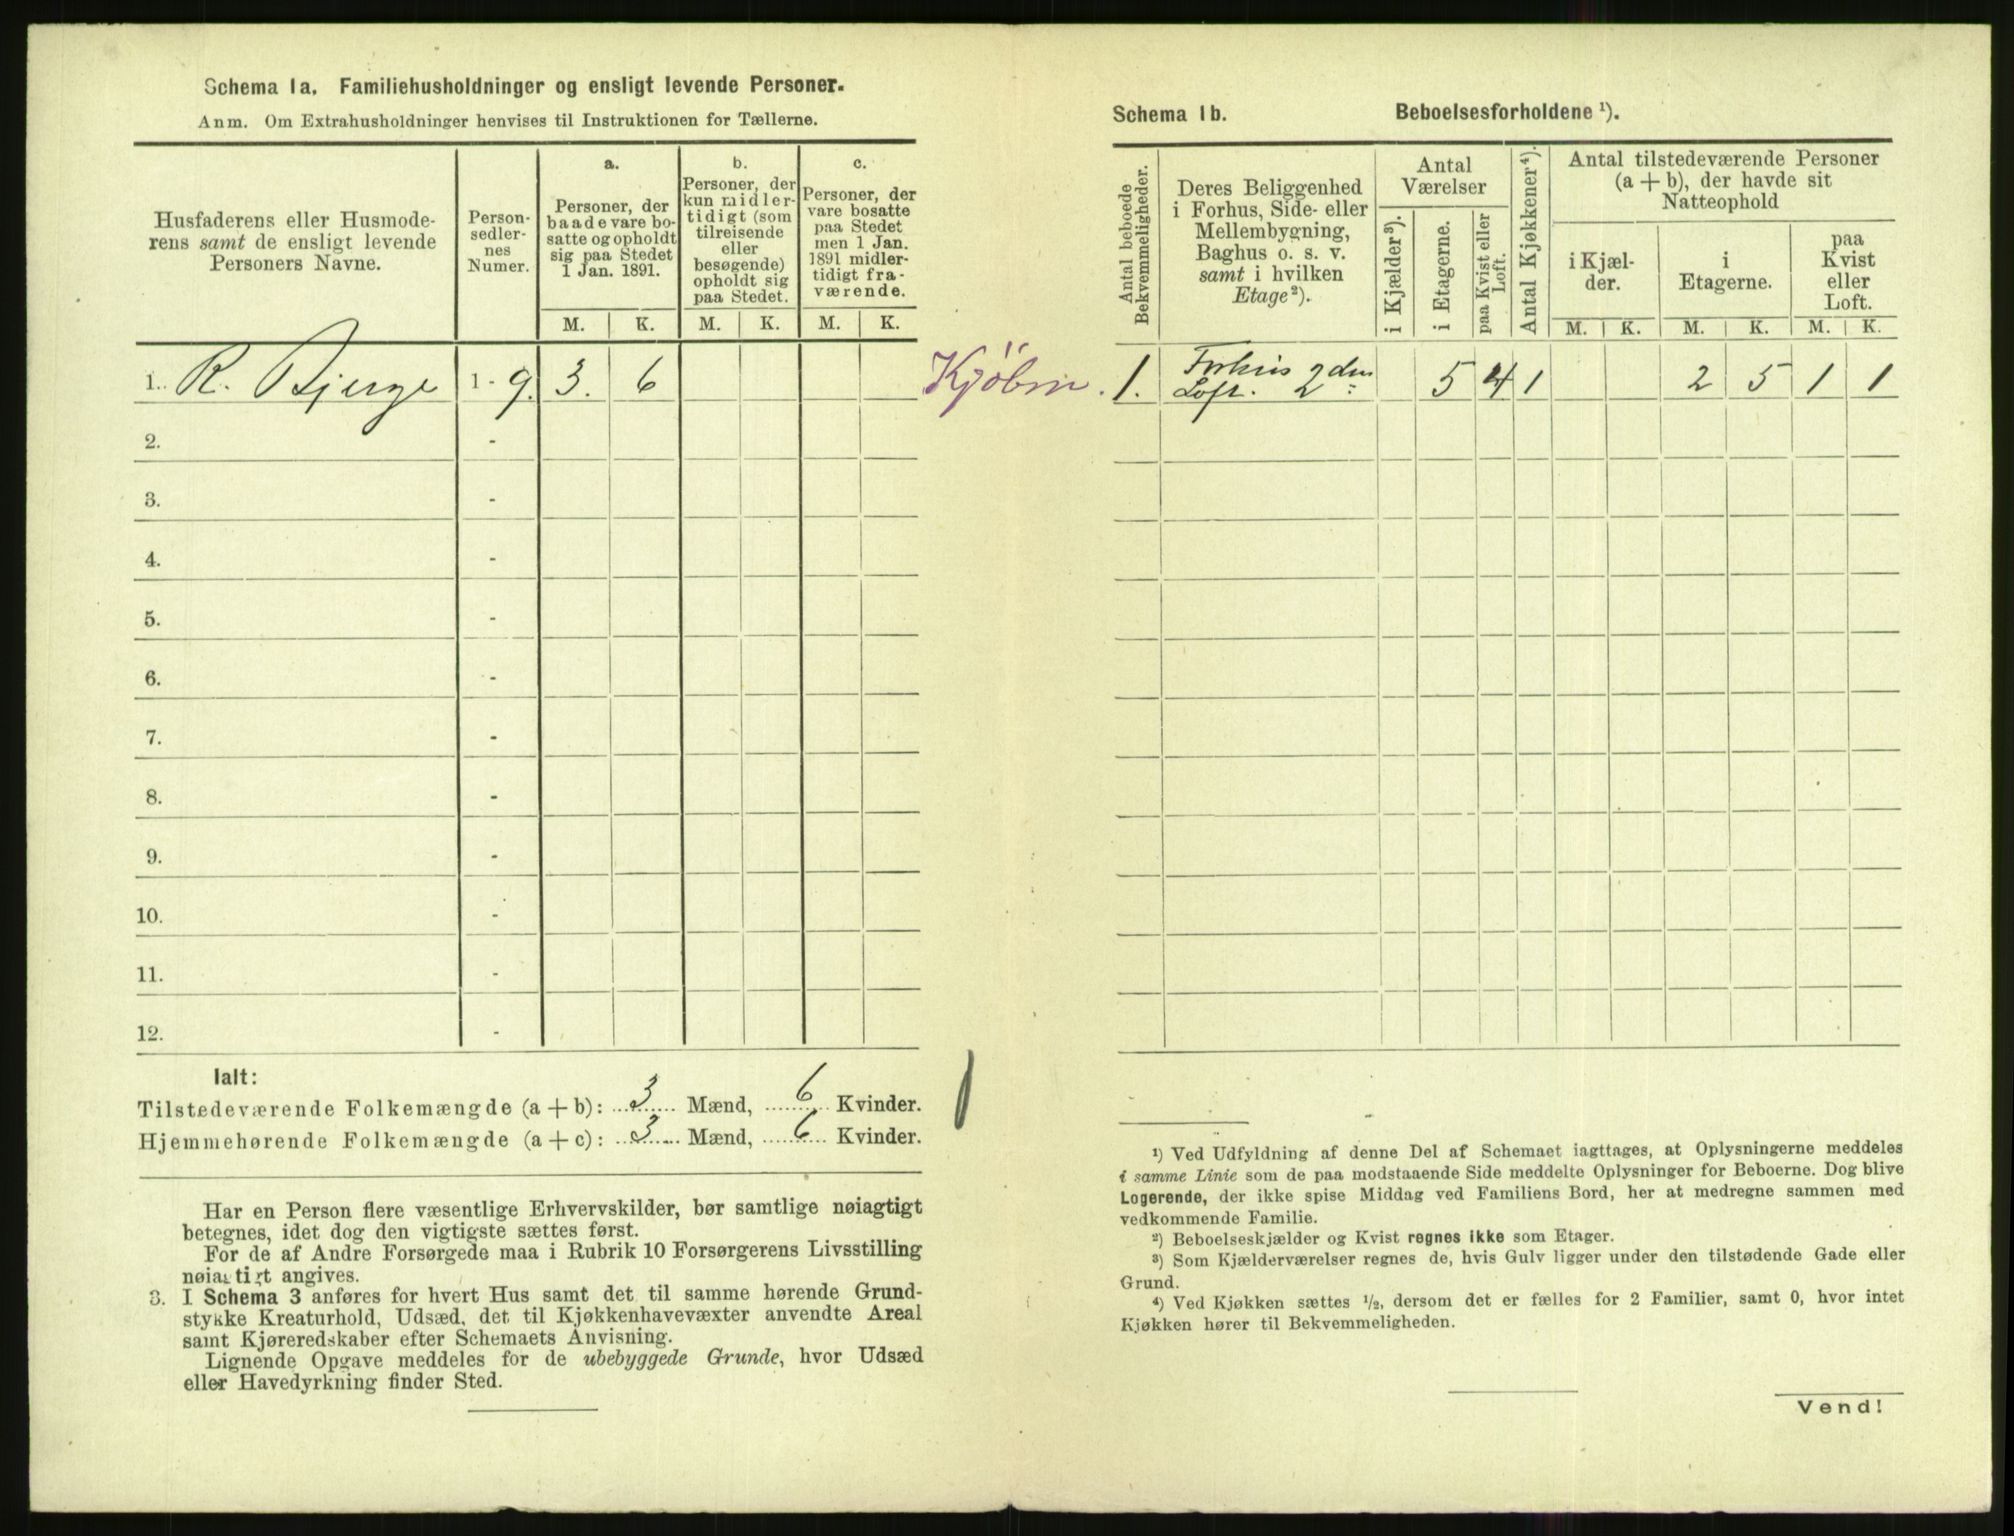 Schema 1a. Familiehusholdninger og ensligt levende Personer.
Anm. Om Extrahusholdninger henvises til Instruktionen for Tællerne.
Husfaderens eller Husmoderens samt de ensligt levende Personers Navne.
Personsedlernes Numer.
a.
Personer, der baade vare bosatte og opholdt sig paa Stedet 1 Jan. 1891.
b.
Personer, der kun midlertidigt (som tilreisende eller besøgende) opholdt sig paa Stedet.
c.
Personer, der vare bosatte paa Stedet men 1 Jan. 1891 midlertidigt fraværende.
M. K. M. K. M. K.
1. R. Bjerge 1 - 9. 3. 6
2. -
3. -
4. -
5. -
6. -
7. -
8. -
9. -
10. -
11. -
12. -
Ialt:
Tilstedeværende Folkemængde (a + b): 3 Mænd, 6 Kvinder.
Hjemmehørende Folkemængde (a + c): 3 Mænd, 6 Kvinder.
Har en Person flere væsentlige Erhvervskilder, bør samtlige nøiagtigt
betegnes, idet dog den vigtigste sættes først.
For de af Andre Forsørgede maa i Rubrik 10 Forsørgerens Livsstilling
nøiagtigt angives.
3. I Schema 3 anføres for hvert Hus samt det til samme hørende Grund-
stykke Kreaturhold, Udsæd, det til Kjøkkenhavevæxter anvendte Areal
samt Kjøreredskaber efter Schemaets Anvisning.
Lignende Opgave meddeles for de ubebyggede Grunde, hvor Udsæd
eller Havedyrkning finder Sted.
Schema 1b. Beboelsesforholdene ¹).
Antal beboede Bekvemmeligheder.
Deres Beliggenhed i Forhus, Side- eller Mellembygning, Baghus o. s. v. samt i hvilken Etage²).
Antal Værelser
i Kjælder³).
i Etagerne.
paa Kvist eller Loft.
Antal Kjøkkener⁴).
Antal tilstedeværende Personer (a + b), der havde sit Natteophold
i Kjælder.
i Etagerne.
paa Kvist eller Loft.
M. K. M. K. M. K.
Kjøbm. 1. Forhus 2den 5 4 1 2 5 1 1
Loft. 2
¹) Ved Udfyldning af denne Del af Schemaet iagttages, at Oplysningerne meddeles
i samme Linie som de paa modstaaende Side meddelte Oplysninger for Beboerne. Dog blive
Logerende, der ikke spise Middag ved Familiens Bord, her at medregne sammen med
vedkommende Familie.
²) Beboelseskjælder og Kvist regnes ikke som Etager.
³) Som Kjælderværelser regnes de, hvis Gulv ligger under den tilstødende Gade eller
Grund.
⁴) Ved Kjøkken sættes ½, dersom det er fælles for 2 Familier, samt 0, hvor intet
Kjøkken hører til Bekvemmeligheden.
Vend!